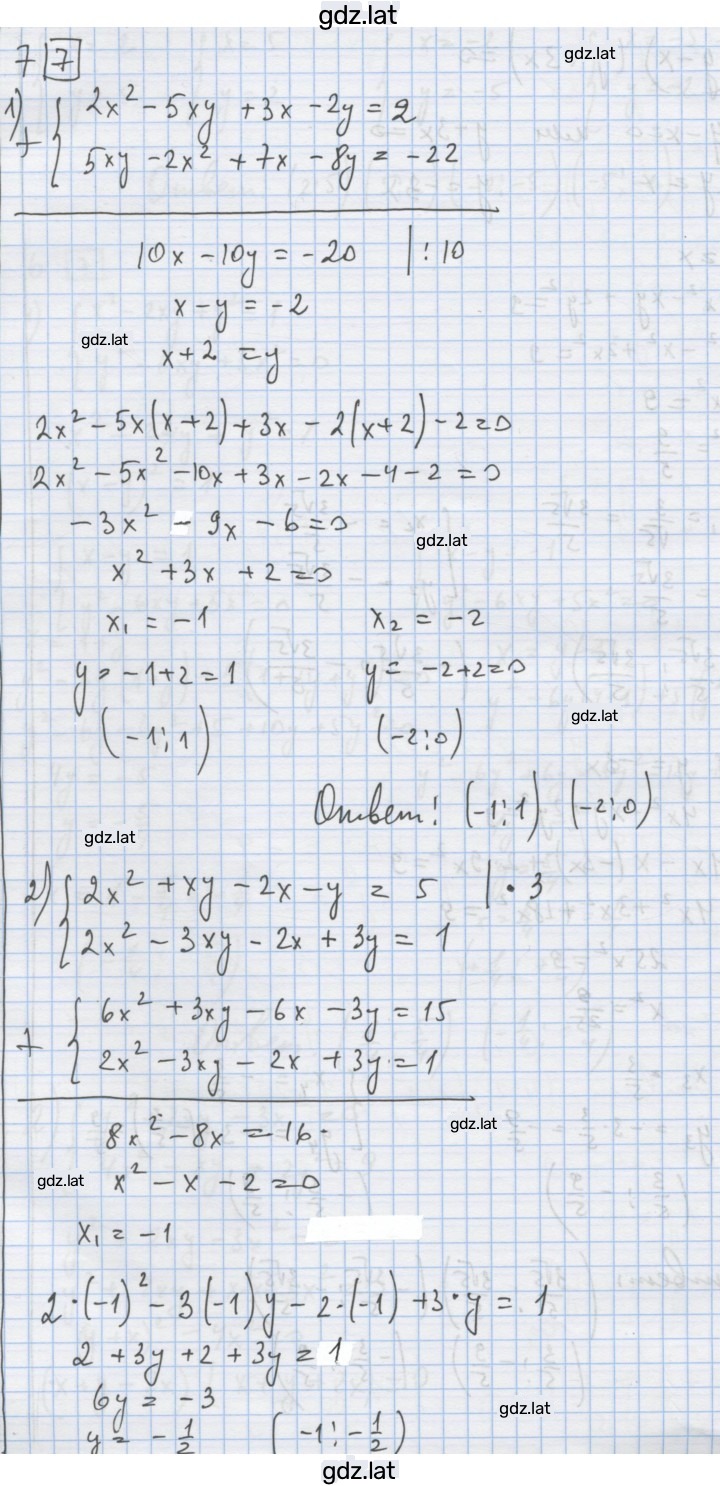 gdz.lat
7 7
gdz.lat
1)
+ { 2x² - 5xy + 3x - 2y = 2
5xy - 2x² + 7x - 8y = -22
10x - 10y = -20 | : 10
x - y = -2
gdz.lat
x + 2 = y
2x² - 5x(x + 2) + 3x - 2(x + 2) - 2 = 0
2x² - 5x² - 10x + 3x - 2x - 4 - 2 = 0
-3x² - 9x - 6 = 0
gdz.lat
x² + 3x + 2 = 0
x₁ = -1 x₂ = -2
y = -1 + 2 = 1 y = -2 + 2 = 0
gdz.lat
(-1; 1) (-2; 0)
Ответ: (-1; 1) (-2; 0)
gdz.lat
2) { 2x² + xy - 2x - y = 5 | · 3
2x² - 3xy - 2x + 3y = 1
+ { 6x² + 3xy - 6x - 3y = 15
2x² - 3xy - 2x + 3y = 1
8x² - 8x = 16
gdz.lat
gdz.lat
x² - x - 2 = 0
x₁ = -1
2 · (-1)² - 3(-1)y - 2 · (-1) + 3 · y = 1
2 + 3y + 2 + 3y = 1
6y = -3
gdz.lat
y = -1/2 (-1; -1/2)
gdz.lat